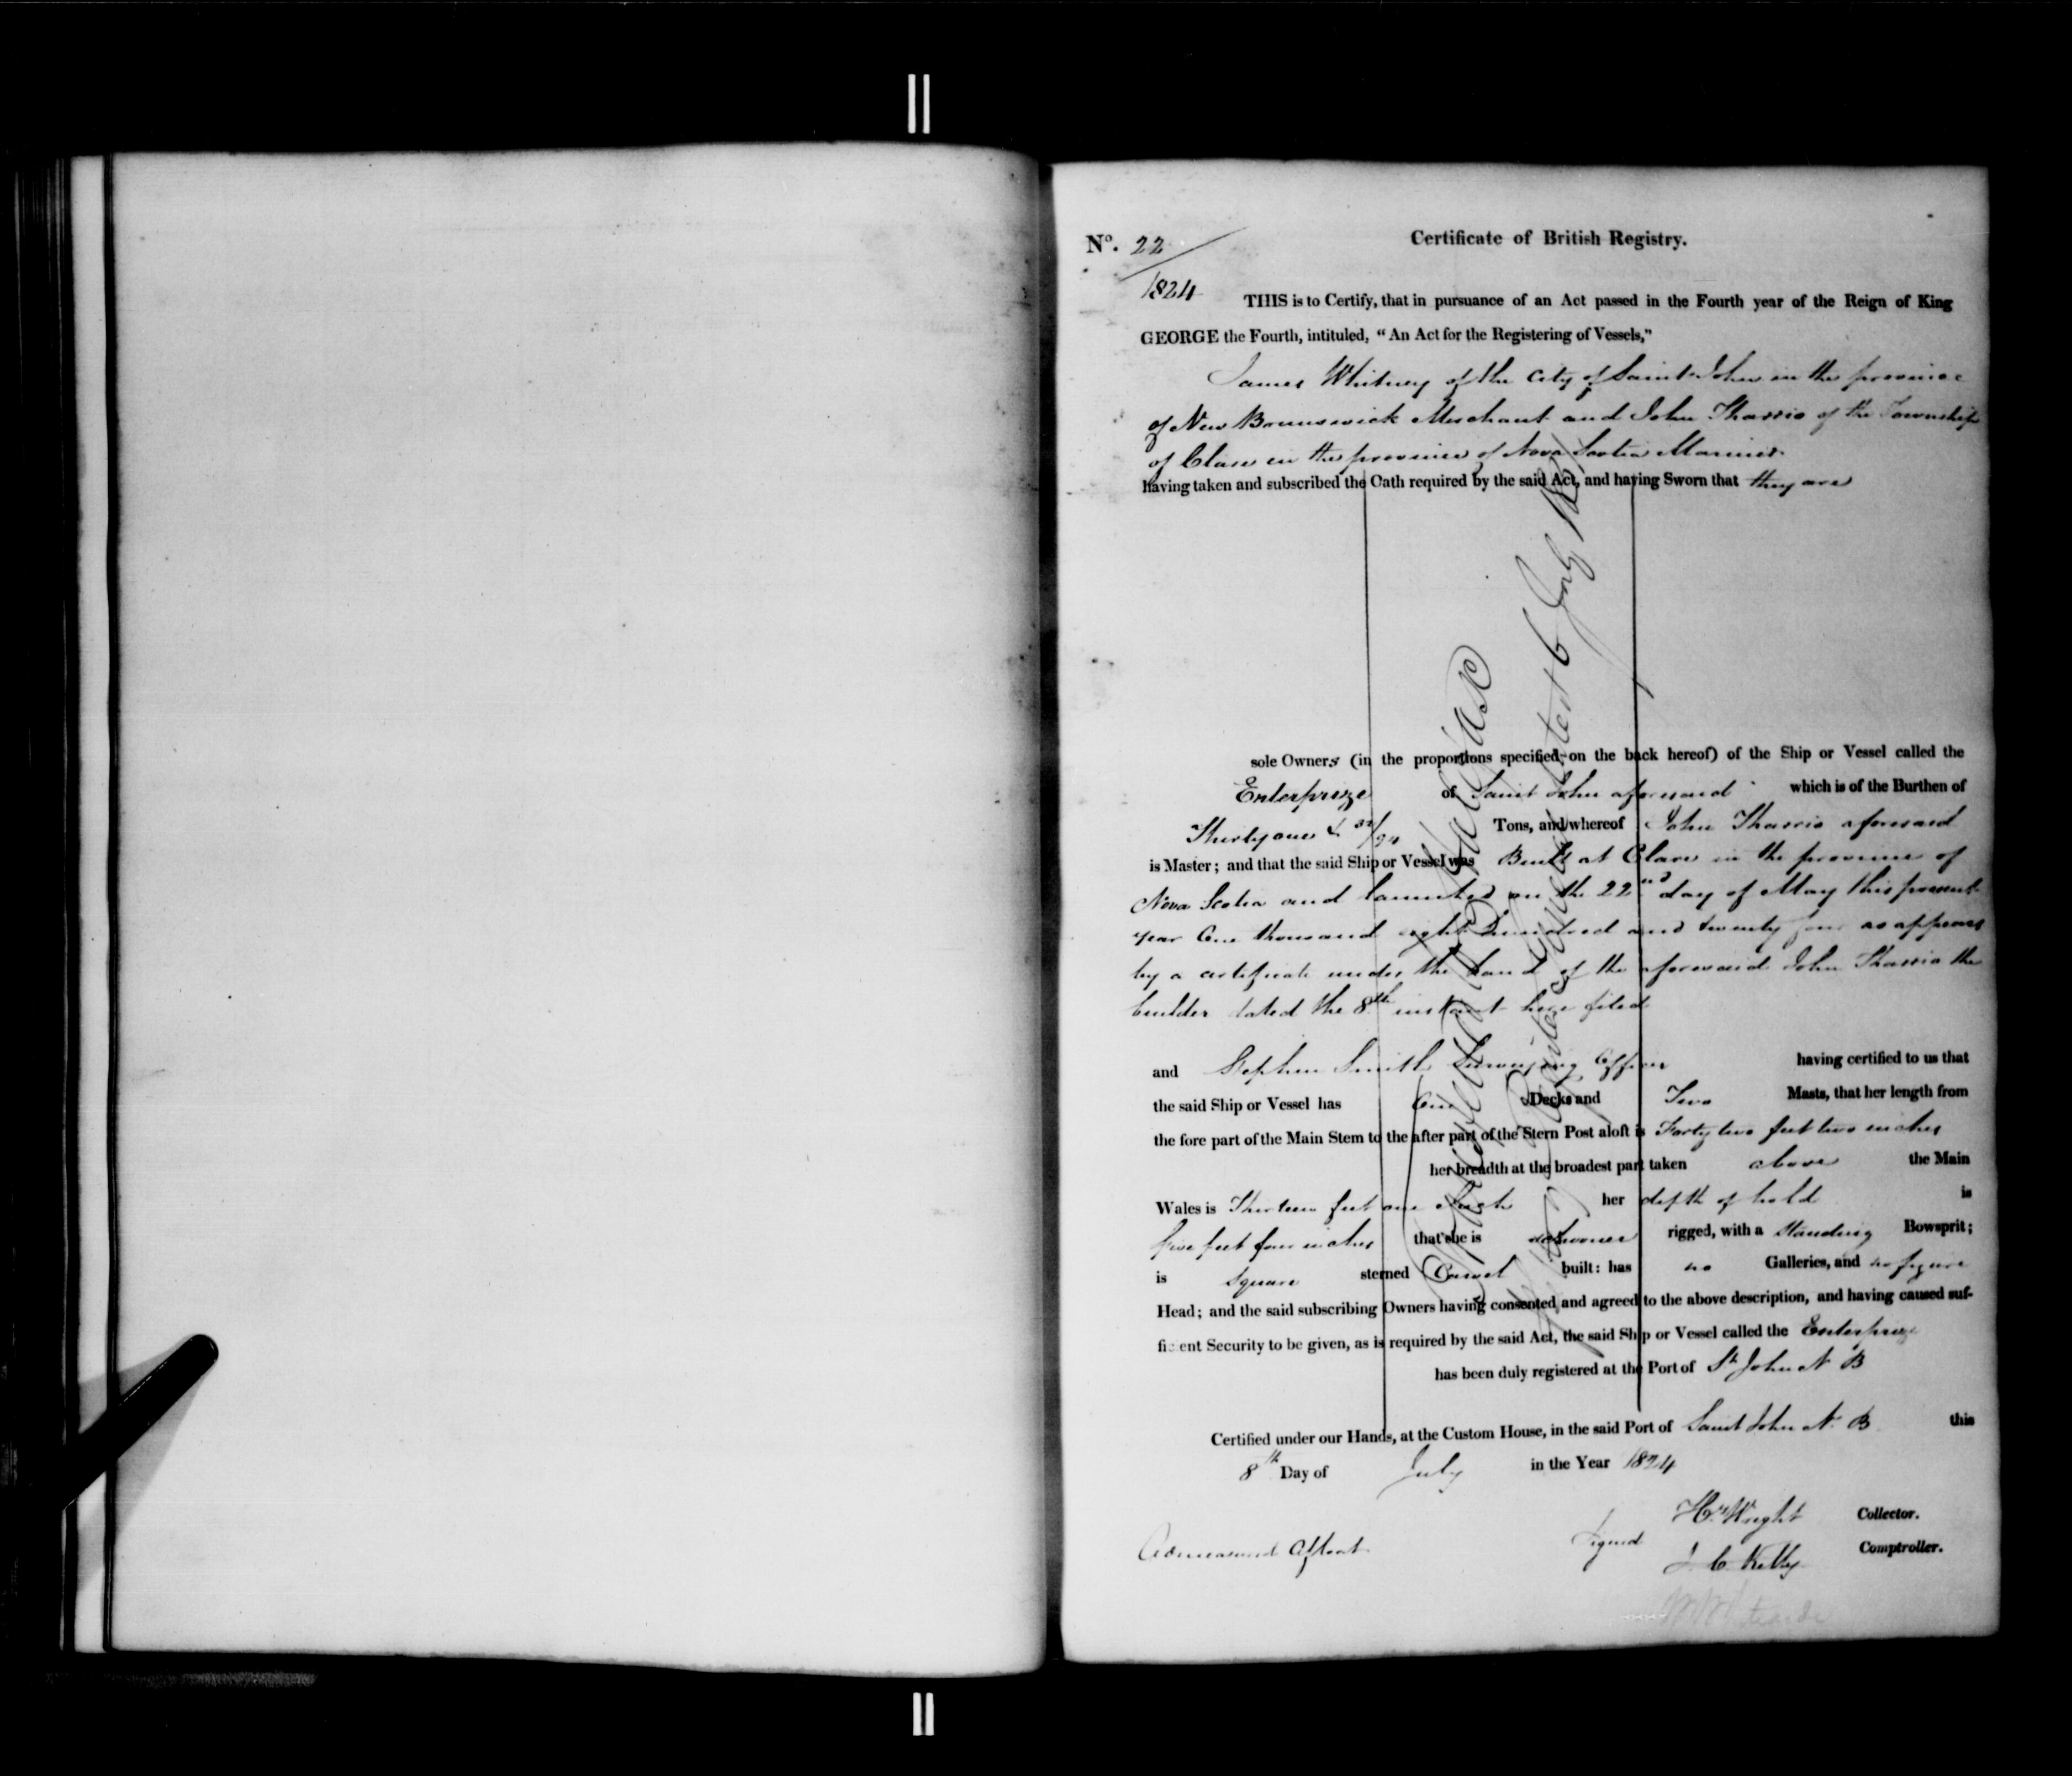 Nº. 22
1824
Certificate of British Registry.
THIS is to Certify, that in pursuance of an Act passed in the Fourth year of the Reign of King
GEORGE the Fourth, intituled, “An Act for the Registering of Vessels,”
James Whitney of the City of Saint John in the province
of New Brunswick Merchant and John Tharrio of the Township
of Clare in the province of Nova Scotia Mariner
having taken and subscribed the Oath required by the said Act, and having Sworn that they are
sole Owners (in the proportions specified on the back hereof) of the Ship or Vessel called the
Enterprize of Saint John aforesaid which is of the Burthen of
Thirty one & 32/94 Tons, and whereof John Tharrio aforesaid
is Master; and that the said Ship or Vessel was Built at Clare in the province of
Nova Scotia and launched on the 22nd day of May this present
year One thousand eight hundred and twenty four as appears
by a certificate under the hand of the aforesaid John Tharrio the
builder dated the 8th instant here filed
and Stephen Smith Surveying Officer having certified to us that
the said Ship or Vessel has One Decks and Two Masts, that her length from
the fore part of the Main Stem to the after part of the Stern Post aloft is Forty two feet two inches
her breadth at the broadest part taken above the Main
Wales is Thirteen feet one Inch her depth of hold is
five feet four inches that she is schooner rigged, with a standing Bowsprit;
is square sterned Carvel built: has no Galleries, and no figure
Head; and the said subscribing Owners having consented and agreed to the above description, and having caused suf-
ficient Security to be given, as is required by the said Act, the said Ship or Vessel called the Enterprize
has been duly registered at the Port of St John N B
Certified under our Hands, at the Custom House, in the said Port of Saint John N. B this
8th Day of July in the Year 1824
Signed Hy Wright Collector.
Admeasured Afloat
J. C. Kelly Comptroller.
Halifax
6 July